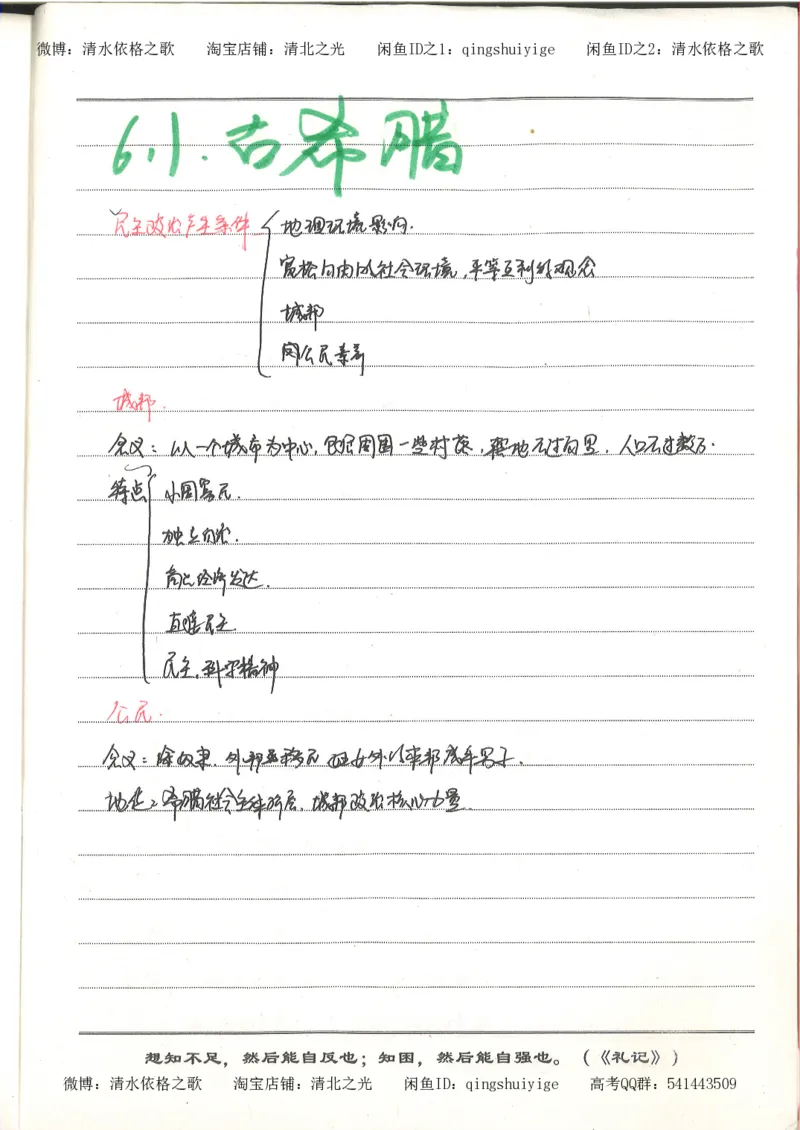 微博：清水依格之歌 淘宝店铺：清北之光 闲鱼ID之1：qingshuiyige 闲鱼ID之2：清水依格之歌
6.1.古希腊
民主政治产生条件 地理环境影响.
宽松自由的社会环境,平等互利的观念
城邦
公民
城邦.
含义：以一个城市为中心,包括周围一些村落,据地不过百里,人口不过数万.
特点 小国寡民.
独立自治.
商品经济发达.
直接民主
民主,科学精神
公民.
含义：除奴隶,外邦移民 妇女外的本邦成年男子.
地位：希腊社会主体阶层,城邦政治核心力量
想知不足，然后能自反也；知困，然后能自强也。（《礼记》）
微博：清水依格之歌 淘宝店铺：清北之光 闲鱼ID：qingshuiyige 高考QQ群：541443509